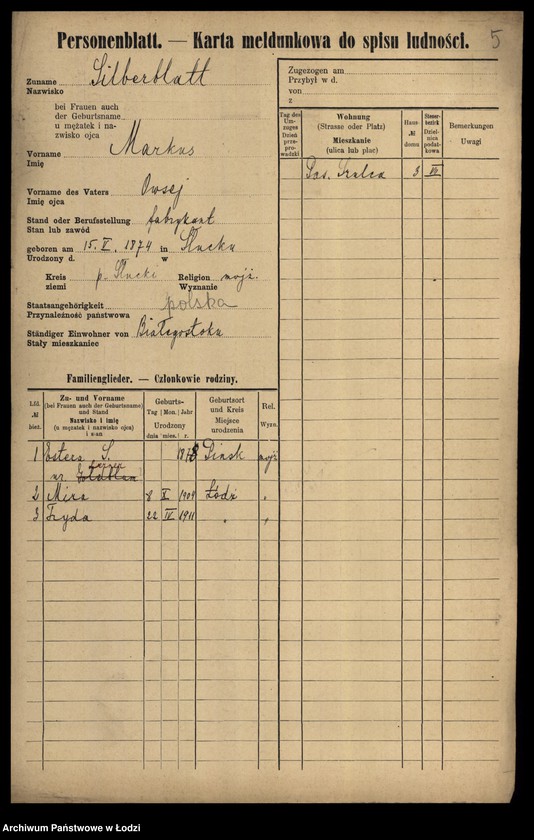 Personenblatt. — Karta meldunkowa do spisu ludności.
5
Zuname Silberblatt
Nazwisko
bei Frauen auch
der Geburtsname
u mężatek i na-
zwisko ojca
Vorname Markus
Imię
Vorname des Vaters Owsej
Imię ojca
Stand oder Berufsstellung fabrykant
Stan lub zawód
geboren am 15. V. 1874 in Słucku
Urodzony d. w
Kreis p. Słucki Religion mojż.
ziemi Wyznanie
Staatsangehörigkeit polska
Przynależność państwowa
Ständiger Einwohner von Białegostoku
Stały mieszkaniec
Zugezogen am
Przybył w d.
von
z
Tag des Um-zuges Dzień prze-prowadzki
Wohnung (Strasse oder Platz) Mieszkanie (ulica lub plac)
Haus- № domu
Steuer-bezirk Dziel-nica podat-kowa
Bemerkungen Uwagi
Pas. Szulca 3 VII
Familienglieder. — Członkowie rodziny.
Lfd. № bież.
Zu- und Vorname (bei Frauen auch der Geburtsname) und Stand Nazwisko i imię (u mężatek i nazwisko ojca) i stan
Geburts- Tag Mon. Jahr Urodzony dnia mies. r.
Geburtsort und Kreis Miejsce urodzenia
Rel. Wyzn.
1 Estera S. 1878 Pińsk mojż.
ur.
2 Mira 8 X 1909 Łódź "
3 Fryda 22 IV 1911 " "
Archiwum Państwowe w Łodzi